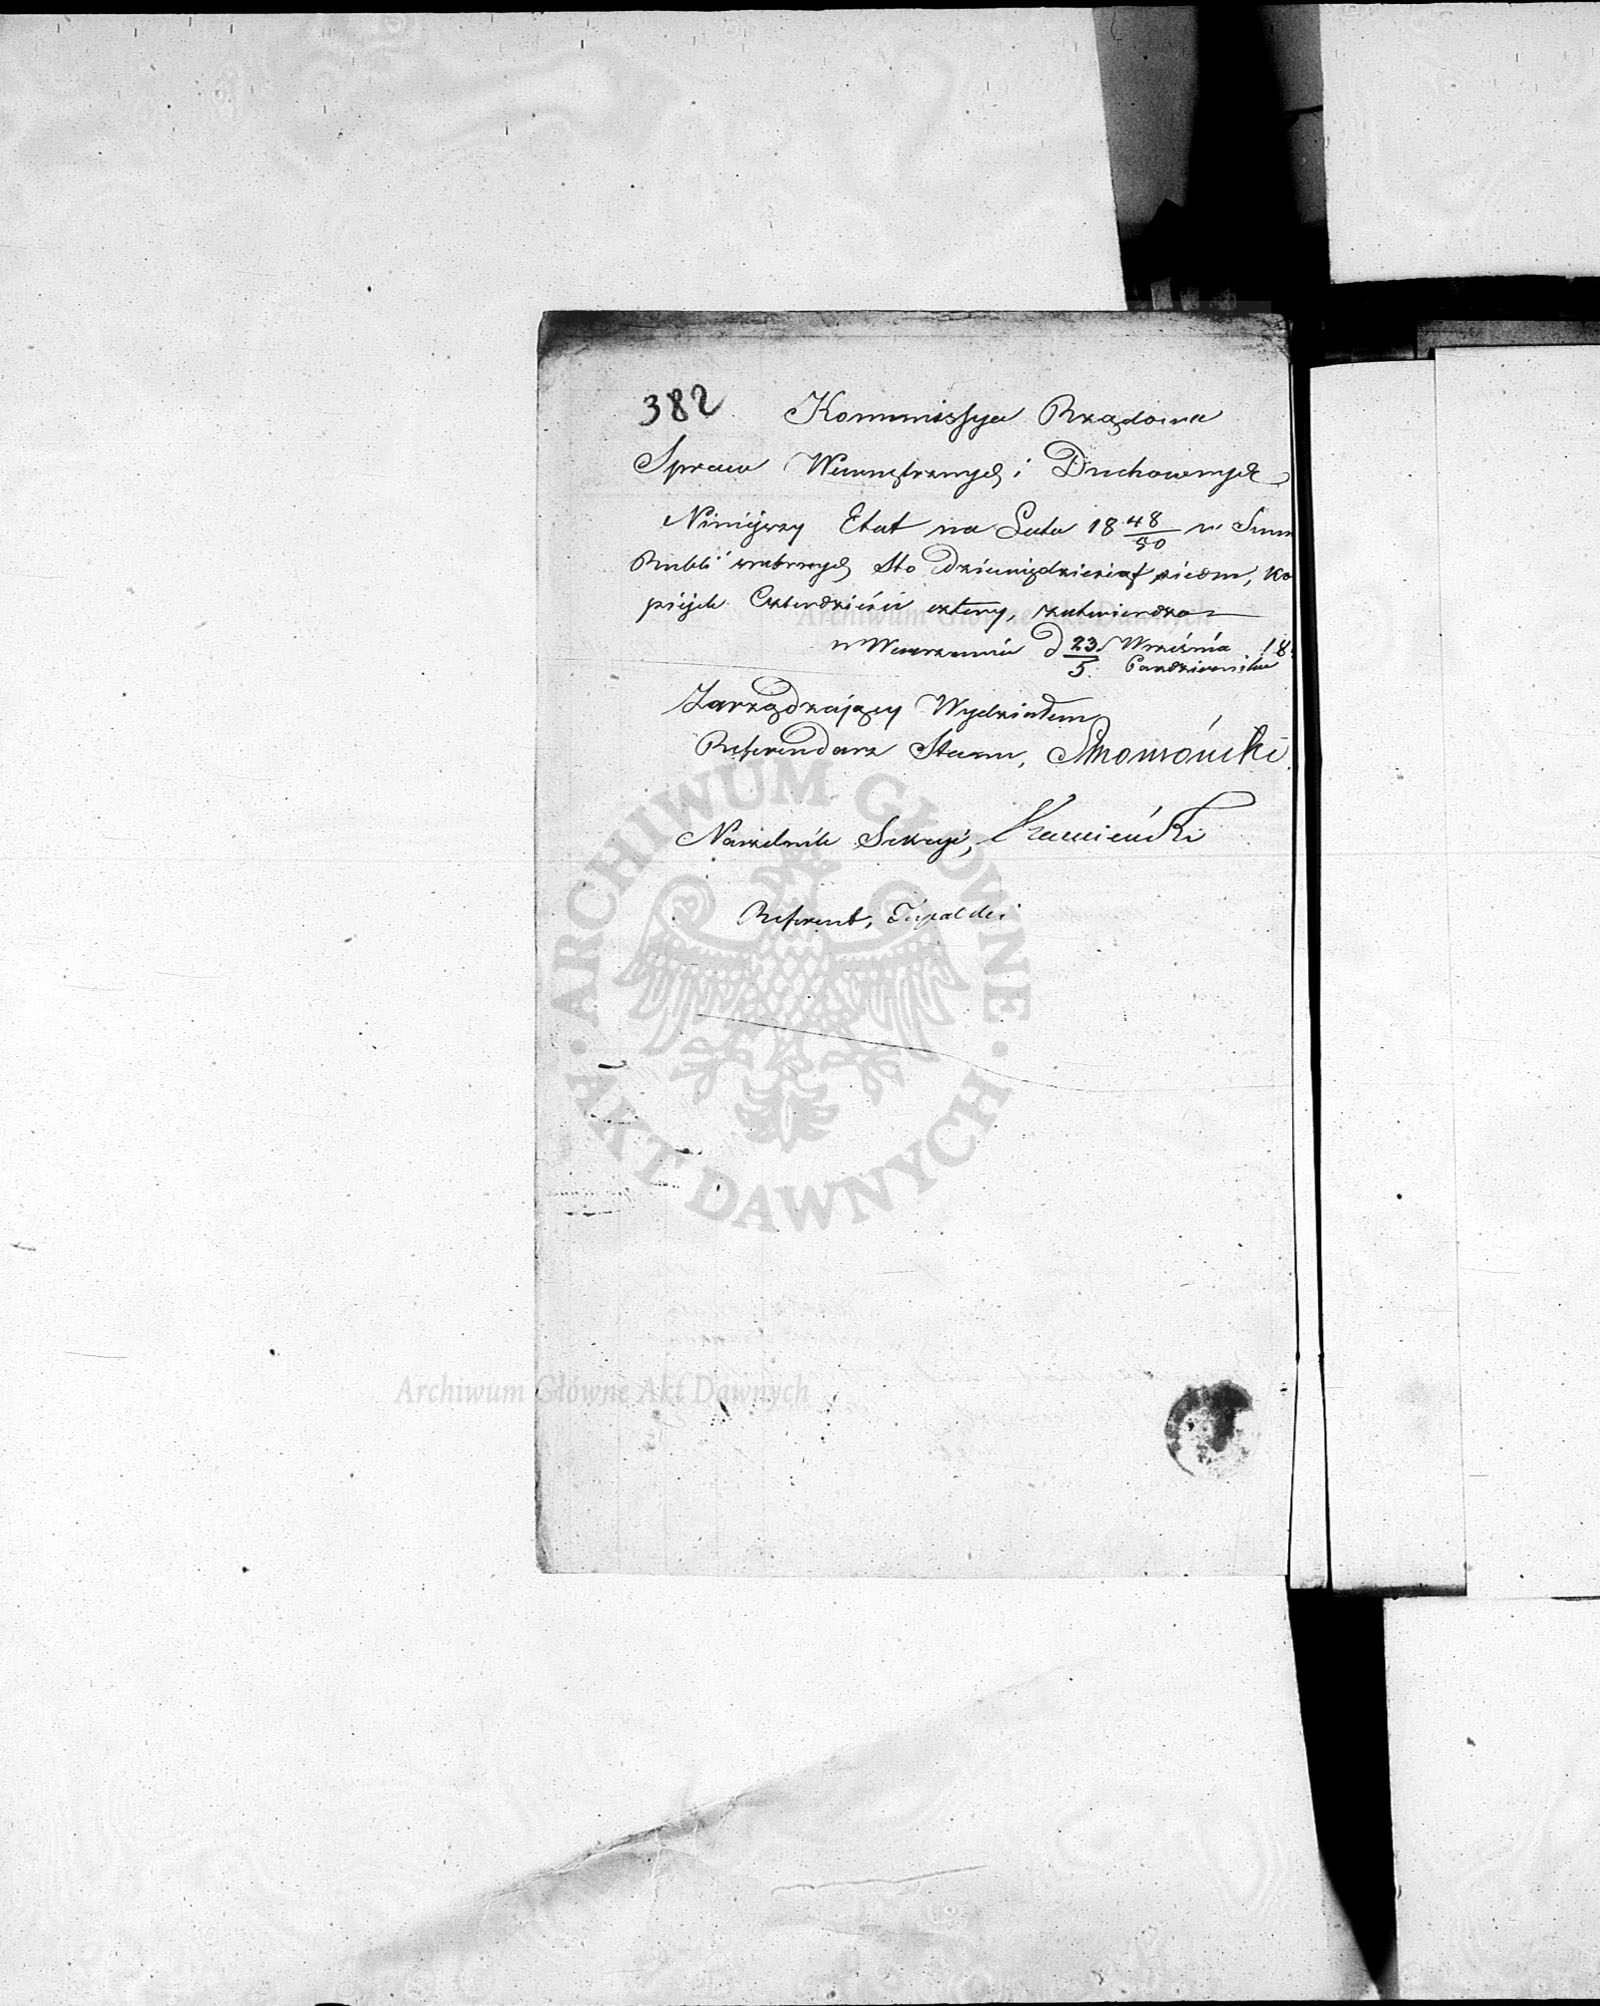 382 Kommissya Rządowa
Spraw Wewnętrznych i Duchownych
Niniejszy Etat na Lata 18 48/50 w Summ
Rubli srebrnych Sto Dziewięćdziesiąt siedm, Ko
piejek Czterdzieści cztery, zatwierdza
w Warszawie d 23/5 Września/Października 18
Zarządzający Wydziałem
Referendarz Stanu,
Naczelnik Sekcyi, Kamieński
Referent,
ARCHIWUM GŁÓWNE AKT DAWNYCH
Archiwum Główne Akt Dawnych
Archiwum Główne Akt Dawnych